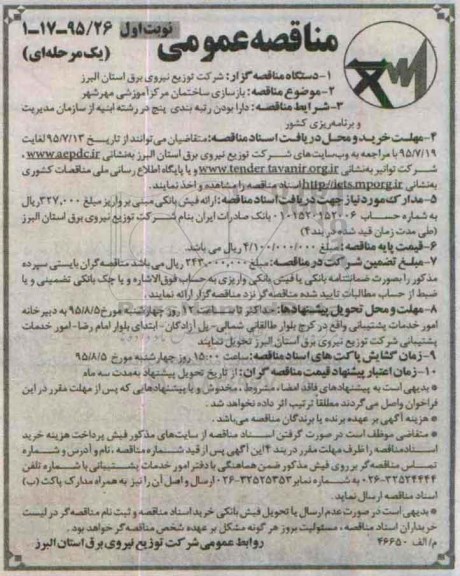 نوبت اول
۱-۱۷-۹۵/۲۶
مناقصه عمومی
(یک مرحله‌ای)
۱-دستگاه مناقصه گزار: شرکت توزیع نیروی برق استان البرز
۲-موضوع مناقصه: بازسازی ساختمان مرکز آموزشی مهرشهر
۳-شرایط مناقصه: دارا بودن رتبه بندی پنج در رشته ابنیه از سازمان مدیریت
و برنامه‌ریزی کشور
۴-مهلت خرید و محل دریافت اسناد مناقصه: متقاضیان می‌توانند از تاریخ ۹۵/۷/۱۳ لغایت
۹۵/۷/۱۹ با مراجعه به وب‌سایت‌های شرکت توزیع نیروی برق استان البرز به‌نشانی www.aepdc.ir،
شرکت توانیر به‌نشانی www.tender.tavanir.org.ir و یا پایگاه اطلاع رسانی ملی مناقصات کشوری
به‌نشانی http://iets.mporg.ir اسناد مناقصه را مشاهده و اخذ نمایند.
۵-مدارک مورد نیاز جهت دریافت اسناد مناقصه: ارائه فیش بانکی مبنی بر واریز مبلغ ۳۲۷,۰۰۰ ریال
به شماره حساب ۰۱۰۱۵۲۰۱۵۲۰۰۶ بانک صادرات ایران بنام شرکت توزیع نیروی برق استان البرز
(طی مدت زمان قید شده در بند ۴)
۶-قیمت پایه مناقصه: مبلغ ۴/۱۰۰/۰۰۰/۰۰۰ ریال می باشد.
۷-مبلغ تضمین شرکت در مناقصه: مبلغ ۲۴۳,۰۰۰,۰۰۰ ریال می باشد مناقصه گران بایستی سپرده
مذکور را بصورت ضمانتنامه بانکی یا فیش بانکی واریزی به حساب فوق‌الاشاره و یا چک بانکی تضمینی و یا
ضبط از حساب مطالبات تایید شده مناقصه گر نزد مناقصه گزار ارائه نمایند.
۸-مهلت و محل تحویل پیشنهادها: حداکثر تا ساعت ۱۲ روز چهارشنبه مورخ ۹۵/۸/۵ به دبیرخانه
امور خدمات پشتیبانی واقع در کرج بلوار طالقانی شمالی- پل آزادگان- ابتدای بلوار امام رضا- امور خدمات
پشتیبانی شرکت توزیع نیروی برق استان البرز تحویل نمایند
۹-زمان گشایش پاکت های اسناد مناقصه: ساعت ۱۵:۰۰ روز چهارشنبه مورخ ۹۵/۸/۵
۱۰-زمان اعتبار پیشنهاد قیمت مناقصه گران: از تاریخ تحویل پیشنهاد به‌مدت سه ماه
* بدیهی است به پیشنهادهای فاقد امضاء، مشروط، مخدوش و یا پیشنهادهایی که پس از مهلت مقرر در این
فراخوان واصل می‌گردند مطلقا ترتیب اثر داده نخواهد شد.
* هزینه آگهی بر عهده برنده یا برندگان مناقصه می‌باشد.
* متقاضی موظف است در صورت گرفتن اسناد مناقصه از سایت‌های مذکور فیش پرداخت هزینه خرید
اسناد مناقصه را ظرف مهلت مقرر در بند ۴ این آگهی پس از قید شماره مناقصه، نام و آدرس و شماره
تماس مناقصه گر بر روی فیش مذکور ضمن هماهنگی با دفتر امور خدمات پشتیبانی با شماره تلفن
۰۲۶-۳۲۵۲۴۴۴۴ به شماره نمابر ۰۲۶-۳۲۵۲۵۳۵۳ ارسال و اصل آن را نیز به همراه مدارک پاکت (ب)
اسناد مناقصه ارسال نماید.
* بدیهی است در صورت عدم ارسال یا تحویل فیش بانکی خرید اسناد مناقصه و ثبت نام مناقصه گر در لیست
خریداران اسناد مناقصه، مسئولیت بروز هر گونه مشکل بر عهده شخص مناقصه گر خواهد بود.
روابط عمومی شرکت توزیع نیروی برق استان البرز
م/الف ۴۶۶۵۰